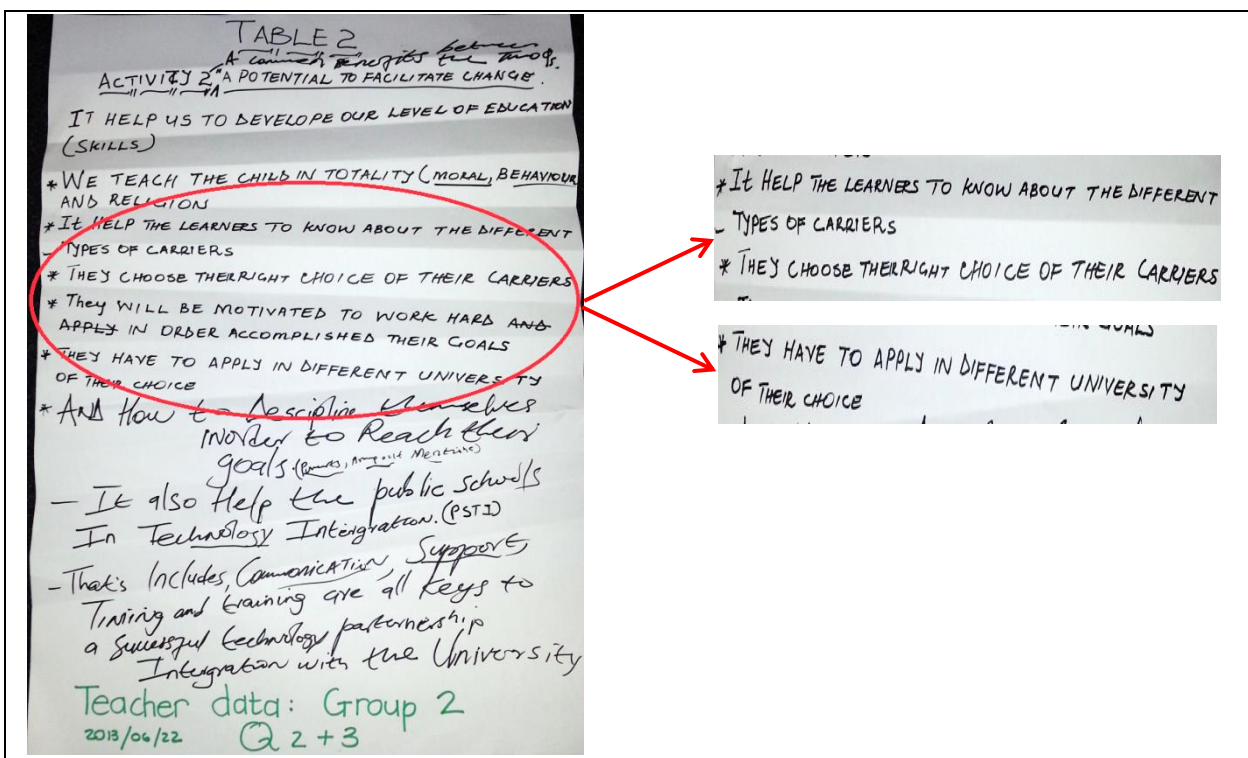 TABLE 2
A common benefits between the two Qs.
ACTIVITY 2 "A POTENTIAL TO FACILITATE CHANGE.
IT HELP US TO DEVELOPE OUR LEVEL OF EDUCATION
(SKILLS)
* WE TEACH THE CHILD IN TOTALITY (MORAL, BEHAVIOUR
AND RELIGION
* It HELP THE LEARNERS TO KNOW ABOUT THE DIFFERENT
- TYPES OF CARRIERS
* THEY CHOOSE THEIRRIGHT CHOICE OF THEIR CARRIERS
* They WILL BE MOTIVATED TO WORK HARD AND
APPLY IN ORDER ACCOMPLISHED THEIR GOALS
* THEY HAVE TO APPLY IN DIFFERENT UNIVERSITY
OF THEIR CHOICE
* AND How to Descipline themselves
inorder to Reach their
goals (Parents,
- It also Help the public Schools
In Technology Intergration. (PSTI)
- That's Includes, Communication, Support,
Timing and training are all Keys to
a successful technology parternership
Intergration with the University
Teacher data: Group 2
2013/06/22 Q 2 + 3
* It HELP THE LEARNERS TO KNOW ABOUT THE DIFFERENT
- TYPES OF CARRIERS
* THEY CHOOSE THEIRRIGHT CHOICE OF THEIR CARRIERS
* THEY HAVE TO APPLY IN DIFFERENT UNIVERSITY
OF THEIR CHOICE